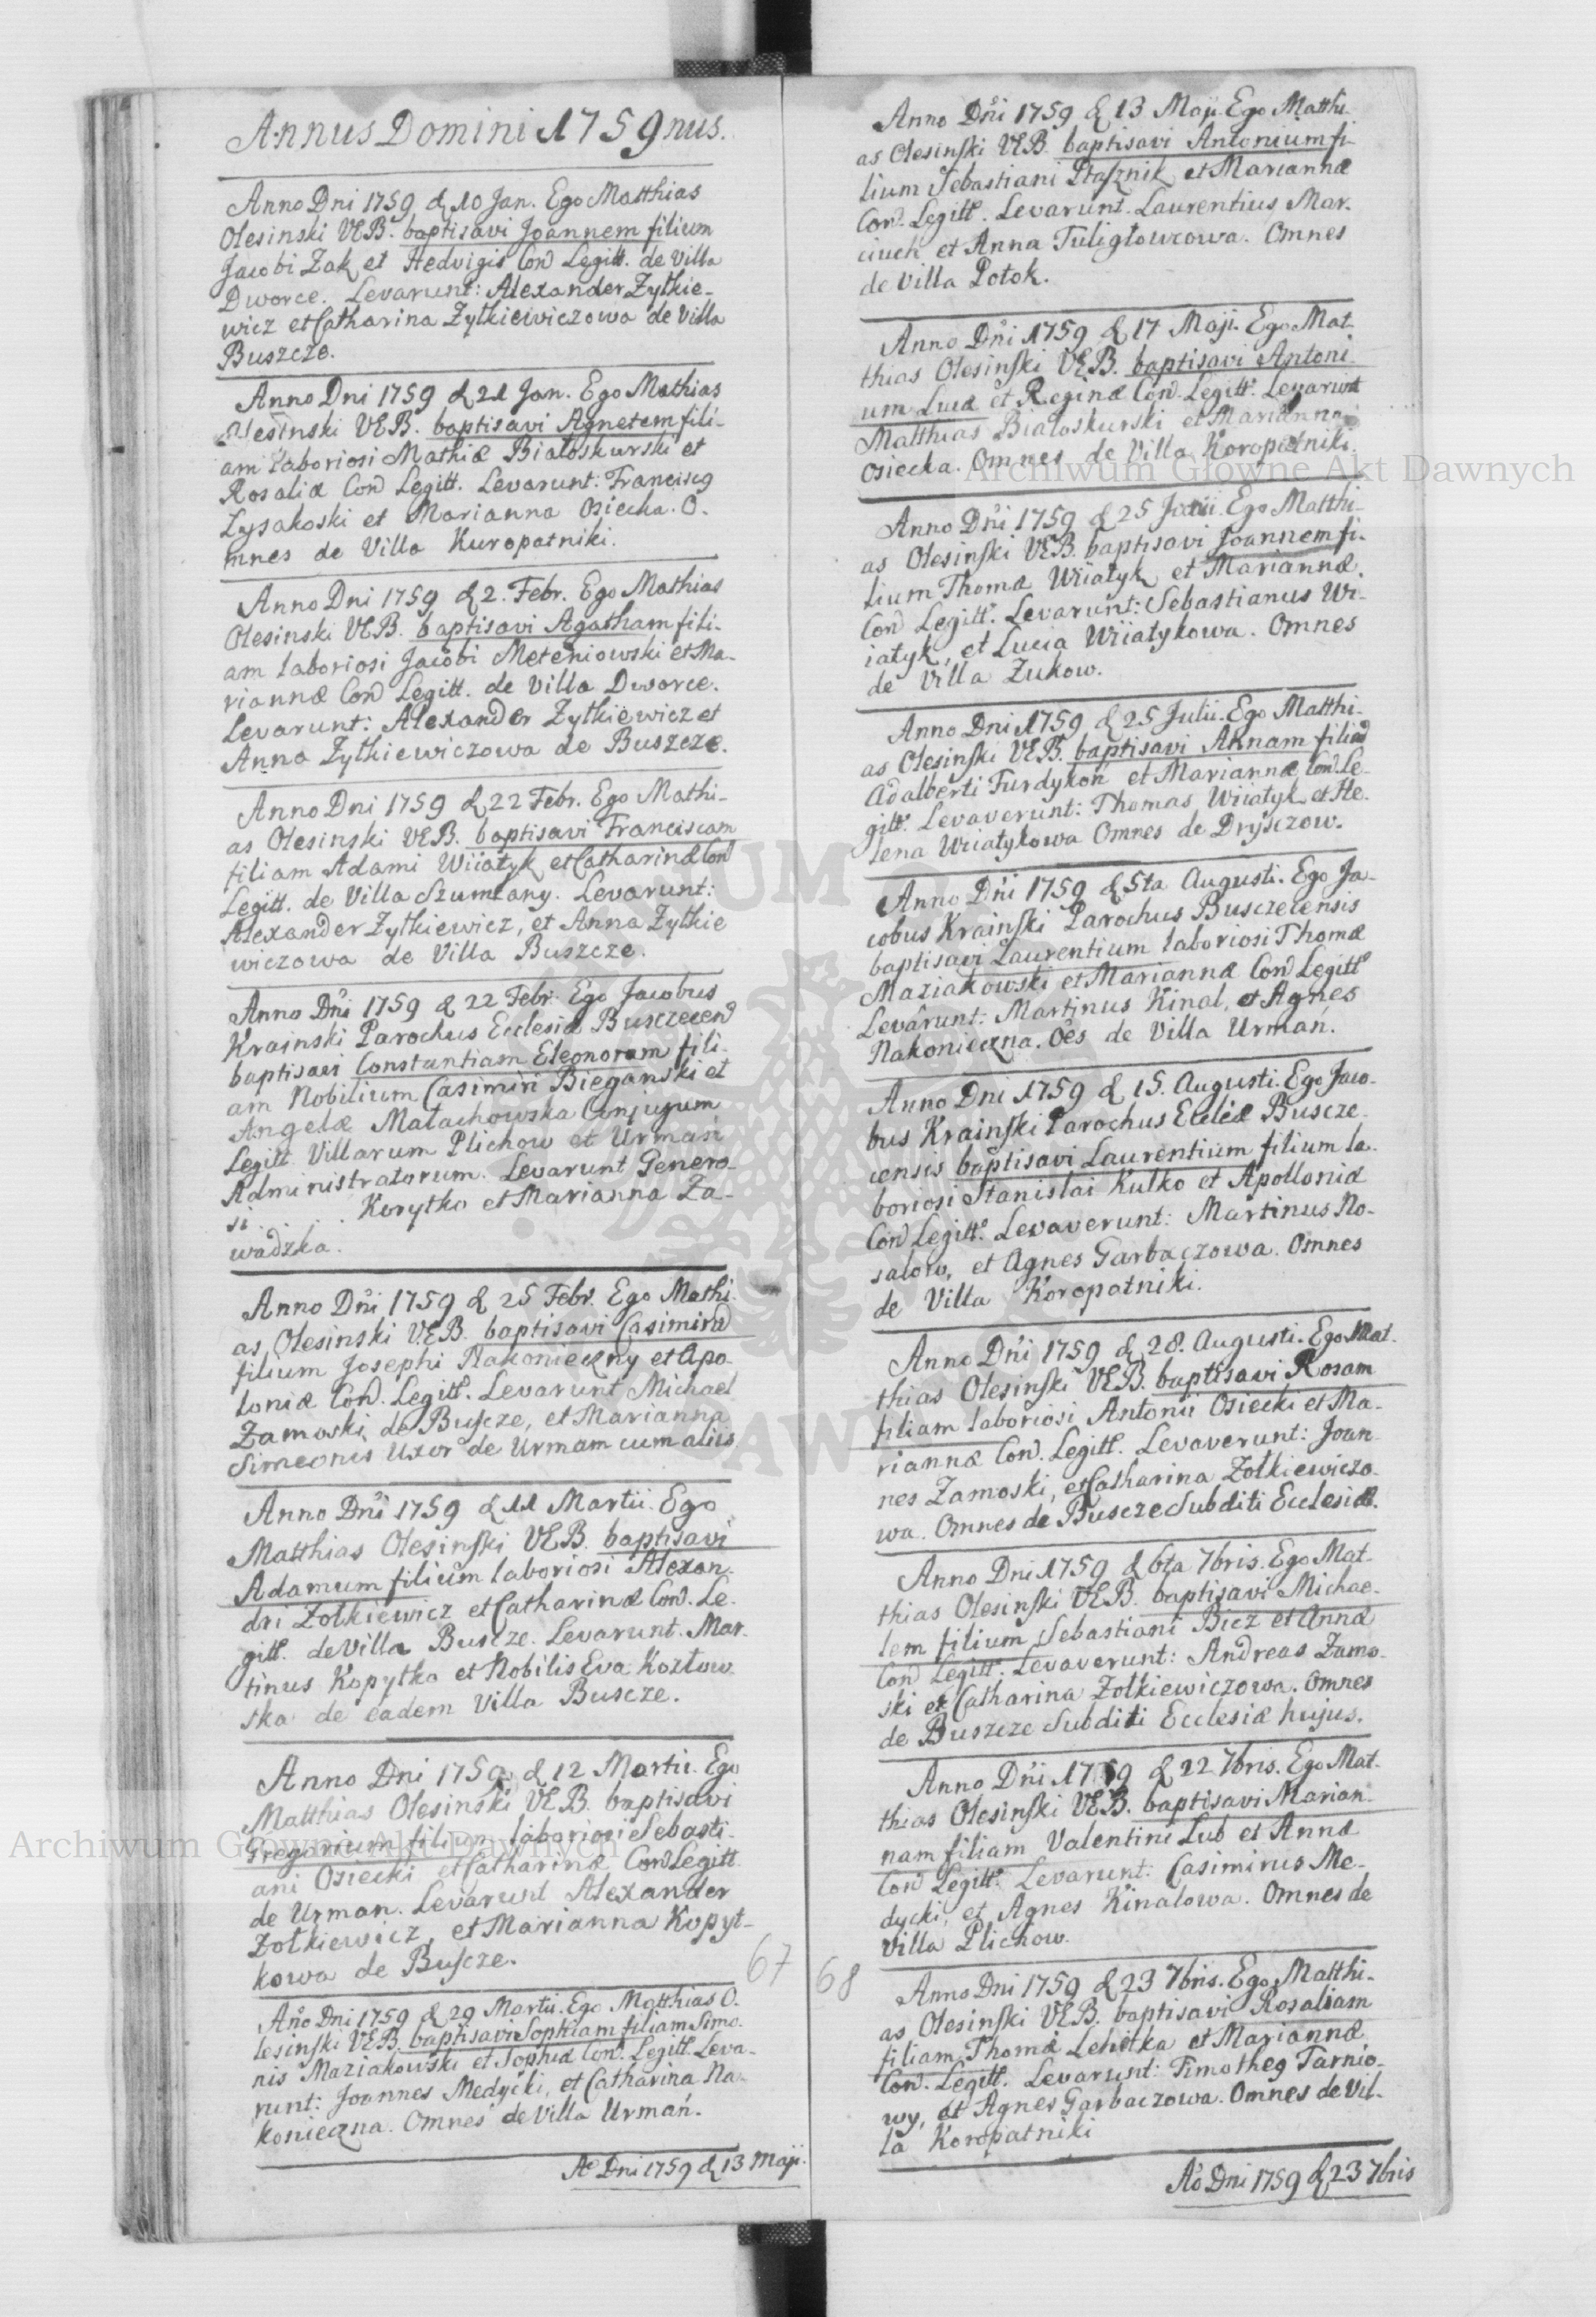 Annus Domini 1759nus.
Anno Dni 1759 d 10 Jan. Ego Matthias
Olesinski VEB. baptisavi Joannem filium
Jacobi Zak et Hedvigis Con Legitt. de villa
Dworce. Levarunt: Alexander Zytkie-
wicz et Catharina Zytkiewiczowa de Villa
Buszcze.
Anno Dni 1759 d 21 Jan. Ego Mathias
Olesinski VEB. baptisavi Agnetem fili-
am laboriosi Mathiæ Białoskurski et
Rosaliæ Con Legitt. Levarunt: Francisc9
Lysakoski et Marianna Osiecka. O-
mnes de Villa Kuropatniki.
Anno Dni 1759 d 2. Febr. Ego Mathias
Olesinski VEB. baptisavi Agatham fili-
am laboriosi Jacobi Meteniowski et Ma-
riannæ Con Legitt. de Villa Dworce.
Levarunt: Alexander Zytkiewicz et
Anna Zytkiewiczowa de Buszcze.
Anno Dni 1759 d 22 Febr. Ego Mathi-
as Olesinski VEB. baptisavi Franciscam
filiam Adami Wiiatyk et Catharinæ Con
Legitt. de Villa Szumlany. Levarunt:
Alexander Zytkiewicz, et Anna Zytkie
wiczowa de Villa Buszcze.
Anno Dni 1759 d 22 Febr. Ego Jacobus
Krainski Parochus Ecclesiæ Busczecen
baptisavi Constantiam Eleonoram fili-
am Nobilium Casimiri Bieganski et
Angelæ Małachowska Conjugum
Legitt. Villarum Plichow et Urmań
Administratorum. Levarunt Genero-
si . . . . Korytko et Marianna Za-
wadzka.
Anno Dni 1759 d 25 Febr. Ego Mathi-
as Olesinski VEB. baptisavi Casimirū
filium Josephi Nakonieczny et Apo-
loniæ Con. Legitt. Levarunt Michael
Zamoski de Buscze, et Marianna
Simeonis Uxor de Urmam cum aliis
Anno Dni 1759 d 11 Martii. Ego
Matthias Olesinski VEB. baptisavi
Adamum filium laboriosi Alexan-
dri Zołkiewicz et Catharinæ Con. Le-
gitt. de Villa Buscze. Levarunt. Mar-
tinus Kopytko et Nobilis Eva Kozłow-
ska de eadem Villa Buscze.
Anno Dni 1759 d 12 Martii. Ego
Matthias Olesinski VEB. baptisavi
Gregorium filium laboriosi Sebasti-
ani Osiecki et Catharinæ Con Legitt.
de Urman. Levarunt Alexander
Zołkiewicz, et Marianna Kopyt-
kowa de Buscze.
Año Dni 1759 d 29 Martii. Ego Matthias O-
lesinski VEB. baptisavi Sophiam filiam Simo-
nis Maziakowski et Sophiæ Con. Legitt. Leva-
runt: Joannes Medycki, et Catharina Na-
konieczna. Omnes de Villa Urmań.
Ao Dni 1759 d 13 Maji.
67
Anno Dni 1759 d 13 Maji. Ego Matthi-
as Olesinski VEB. baptisavi Antonium fi-
lium Sebastiani Ptasznik et Mariannæ
Con. Legitt. Levarunt. Laurentius Mar-
ciuch et Anna Tuligłowzowa. Omnes
de Villa Potok.
Anno Dni 1759 d 17 Maji. Ego Mat-
thias Olesinski VEB. baptisavi Antoni-
um Lucæ et Reginæ Con. Legitt. Levarunt
Matthias Białoskurski et Marianna
Osiecka. Omnes de Villa Koropatniki.
Anno Dni 1759 d 25 Ego Matthi-
as Olesinski VEB. baptisavi Joannem fi-
lium Thomæ Wiiatyk et Mariannæ
Con Legitt. Levarunt: Sebastianus Wi-
iatyk, et Lucia Wiiatykowa. Omnes
de Villa Zukow.
Anno Dni 1759 d 25 Julii. Ego Matthi-
as Olesinski VEB. baptisavi Annam filiam
Adalberti Furdykoń et Mariannæ Con. Le-
gitt. Levaverunt: Thomas Wiiatyk et He-
lena Wiiatykowa Omnes de Dryszczow.
Anno Dni 1759 d 5ta Augusti. Ego Ja-
cobus Krainski Parochus Busczecensis
baptisavi Laurentium laboriosi Thomæ
Maziakowski et Mariannæ Con Legitt
Levarunt: Martinus Kinal, et Agnes
Nakonieczna. Oes de Villa Urmań.
Anno Dni 1759 d 15. Augusti. Ego Jaco-
bus Krainski Parochus Eccliæ Buscze-
censis baptisavi Laurentium filium la-
boriosi Stanislai Kulko et Apolloniæ
Con Legitt. Levaverunt: Martinus No-
salow, et Agnes Garbaczowa. Omnes
de Villa Koropatniki.
Anno Dni 1759 d 28. Augusti. Ego Mat-
thias Olesinski VEB. baptisavi Rosam
filiam laboriosi Antonii Osiecki et Ma-
riannæ Con. Legitt. Levaverunt: Joan-
nes Zamoski, et Catharina Zołkiewiczo-
wa. Omnes de Buscze Subditi Ecclesiæ.
Anno Dni 1759 d 6ta 7bris. Ego Mat-
thias Olesinski VEB. baptisavi Michae-
lem filium Sebastiani Bicz et Annæ
Con Legitt. Levaverunt: Andreas Zamo-
ski et Catharina Zołkiewiczowa. Omnes
de Buszcze Subditi Ecclesiæ hujus.
Anno Dni 1759 d 22 7bris. Ego Mat-
thias Olesinski VEB. baptisavi Marian-
nam filiam Valentini Lub et Annæ
Con Legitt. Levarunt: Casimirus Me-
dycki, et Agnes Kinalowa. Omnes de
Villa Plichow.
68
Anno Dni 1759 d 23 7bris. Ego Matthi-
as Olesinski VEB. baptisavi Rosaliam
filiam Thomæ Lehitka et Mariannæ
Con. Legitt. Levarunt: Timothe9 Tarnio-
wy, et Agnes Garbaczowa. Omnes de Vil-
la Koropatniki
Ao Dni 1759 d 23 7bris
Archiwum Główne Akt Dawnych
Archiwum Główne Akt Dawnych